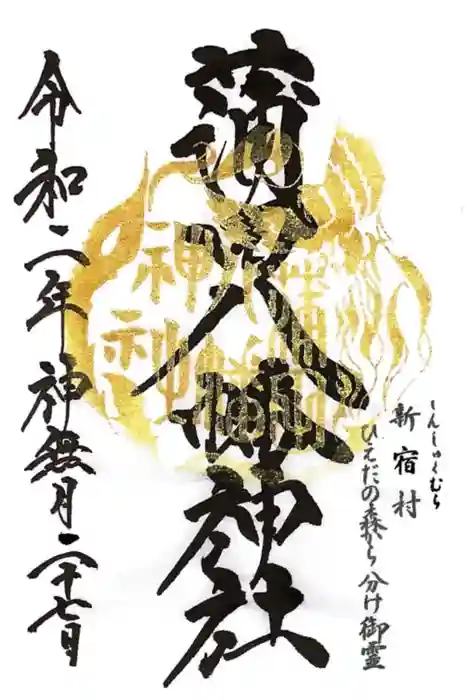 新宿村
しんしゅくむら
ひえだの森から分け御霊
蒲田八幡神社
令和二年神無月二十七日